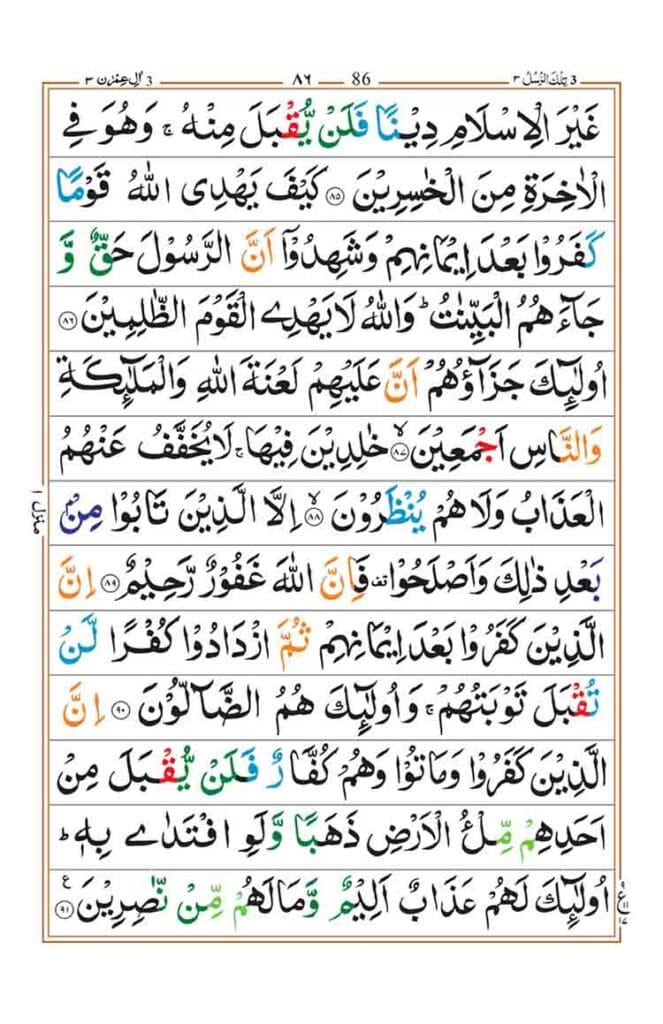 تِلْكَ الرُّسُلُ ٣ 3
86 ٨٦
اٰلِ عِمْرٰن ٣ 3
غَيْرَ الْاِسْلَامِ دِيْنًا فَلَنْ يُّقْبَلَ مِنْهُ ۚ وَهُوَ فِي
الْاٰخِرَةِ مِنَ الْخٰسِرِيْنَ ﴿٨٥﴾ كَيْفَ يَهْدِى اللّٰهُ قَوْمًا
كَفَرُوْا بَعْدَ اِيْمَانِهِمْ وَشَهِدُوْٓا اَنَّ الرَّسُوْلَ حَقٌّ وَّ
جَآءَهُمُ الْبَيِّنٰتُ ؕ وَاللّٰهُ لَا يَهْدِى الْقَوْمَ الظّٰلِمِيْنَ ﴿٨٦﴾
اُولٰٓئِكَ جَزَآؤُهُمْ اَنَّ عَلَيْهِمْ لَعْنَةَ اللّٰهِ وَالْمَلٰٓئِكَةِ
وَالنَّاسِ اَجْمَعِيْنَ ﴿٨٧﴾ۙ خٰلِدِيْنَ فِيْهَا ۚ لَا يُخَفَّفُ عَنْهُمُ
الْعَذَابُ وَلَا هُمْ يُنْظَرُوْنَ ﴿٨٨﴾ۙ اِلَّا الَّذِيْنَ تَابُوْا مِنْۢ
بَعْدِ ذٰلِكَ وَاَصْلَحُوْا ۟ فَاِنَّ اللّٰهَ غَفُوْرٌ رَّحِيْمٌ ﴿٨٩﴾ اِنَّ
الَّذِيْنَ كَفَرُوْا بَعْدَ اِيْمَانِهِمْ ثُمَّ ازْدَادُوْا كُفْرًا لَّنْ
تُقْبَلَ تَوْبَتُهُمْ ۚ وَاُولٰٓئِكَ هُمُ الضَّآلُّوْنَ ﴿٩٠﴾ اِنَّ
الَّذِيْنَ كَفَرُوْا وَمَاتُوْا وَهُمْ كُفَّارٌ فَلَنْ يُّقْبَلَ مِنْ
اَحَدِهِمْ مِّلْءُ الْاَرْضِ ذَهَبًا وَّلَوِ افْتَدٰى بِهٖ ؕ
اُولٰٓئِكَ لَهُمْ عَذَابٌ اَلِيْمٌ وَّمَا لَهُمْ مِّنْ نّٰصِرِيْنَ ﴿٩١﴾ ع
منزل ١